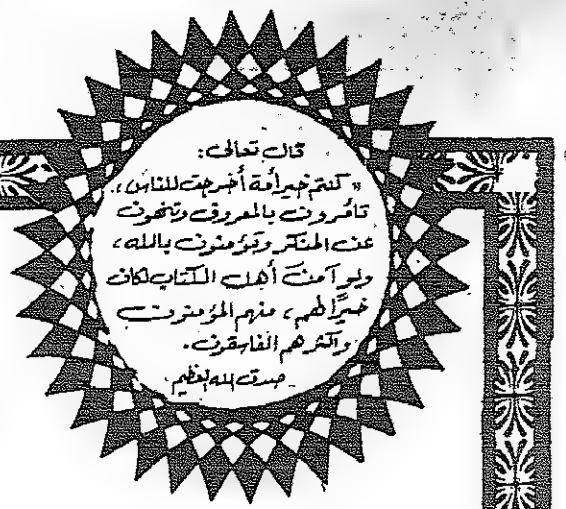 قال تعالى:
« كنتم خير أمة أخرجت للناس ،
تأمرون بالمعروف وتنهون
عن المنكر وتؤمنون بالله ،
ولو آمنَ أهل الكتاب لكان
خيرًا لهم ، منهم المؤمنون
وأكثرهم الفاسقون .
صدق الله العظيم .